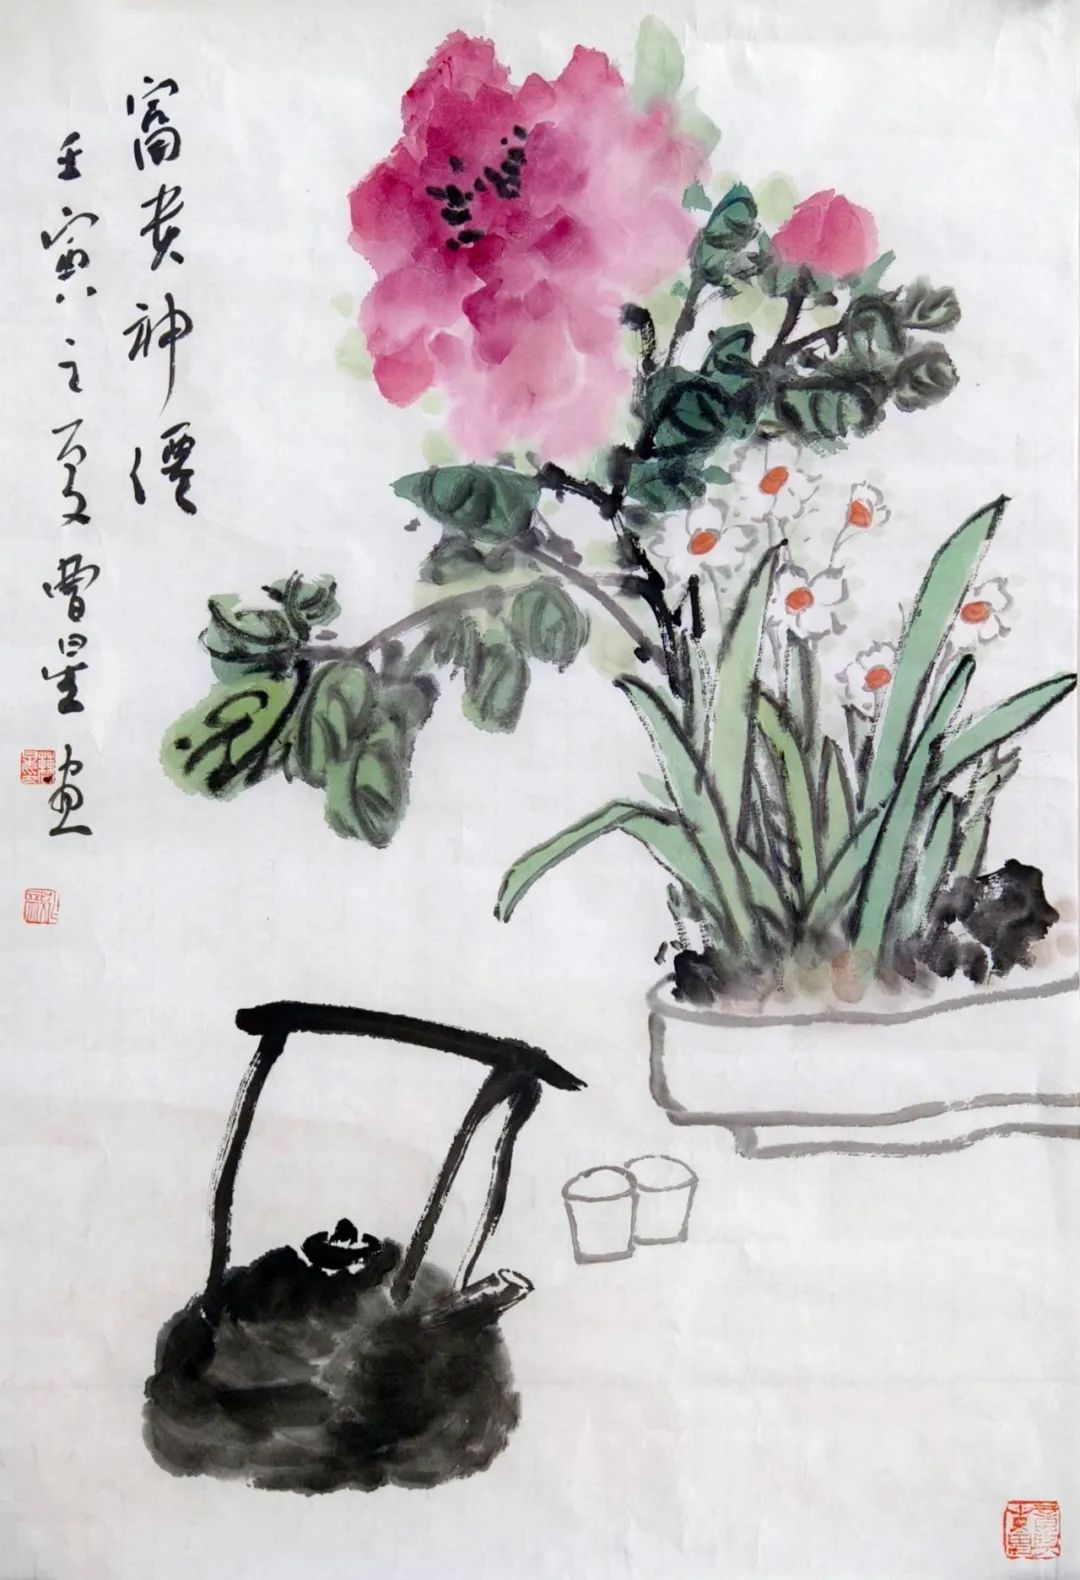 富贵神僊
壬寅之夏曹星画